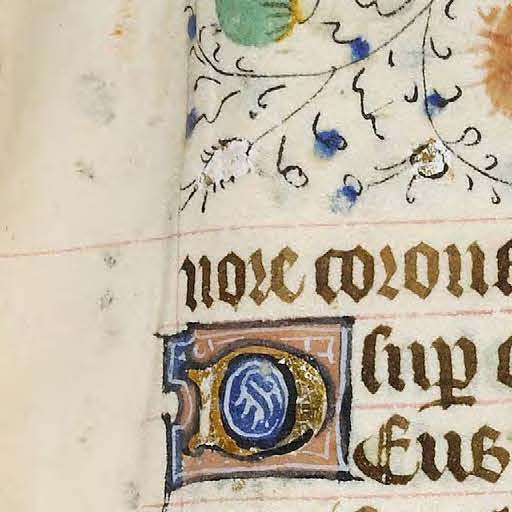 nore coron
sup
DEus